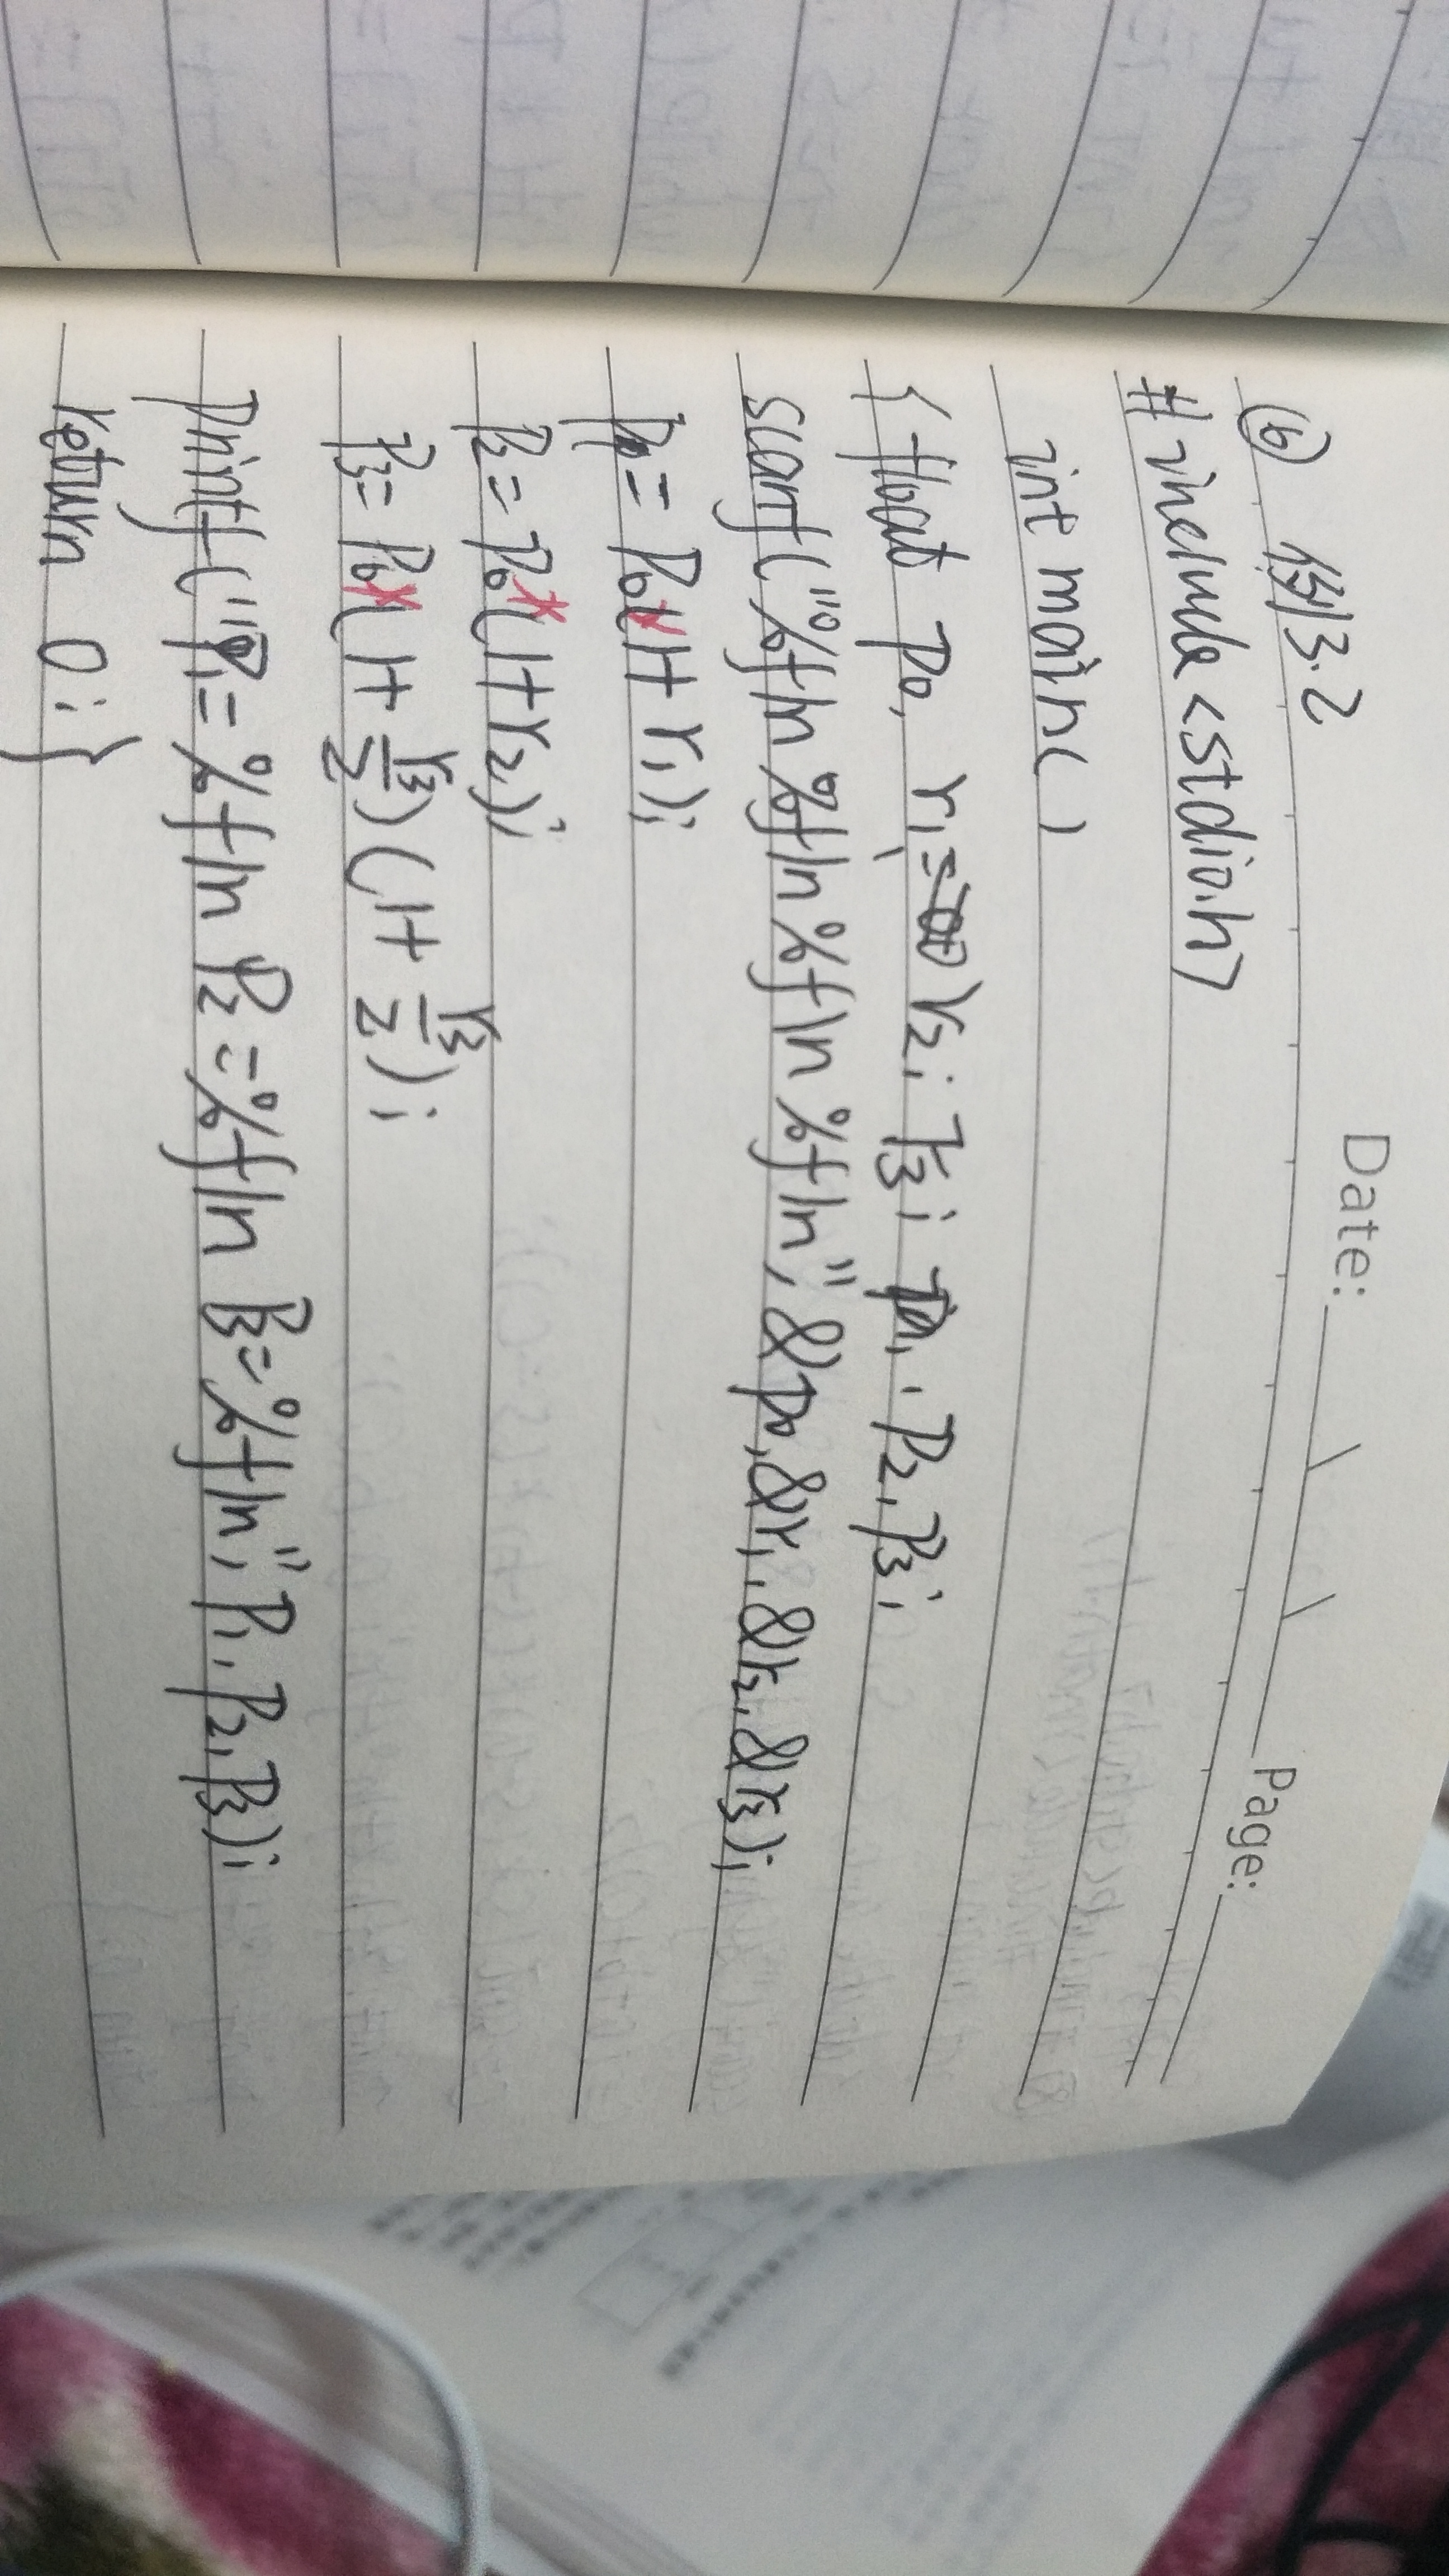 Date:
Page:
⑥ 例3.2
#include<stdio.h>
int main()
{float p0, r1, r2; r3; p1, p2, p3;
scanf("%f\n %f\n %f\n %f\n", &p0, &r1, &r2, &r3);
p1 = p0*(1+r1);
p2 = p0*(1+r2);
p3 = p0*(1+r3/2)(1+r3/2);
printf("p1=%f\n p2=%f\n p3=%f\n", p1, p2, p3);
return 0;}